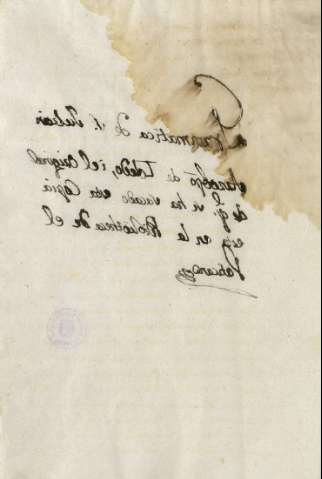 La Grammatica de S. Julian
Arzobpo de Toledo, i el original
de q. se ha sacado esta Copia
esta en la Biblioteca de el